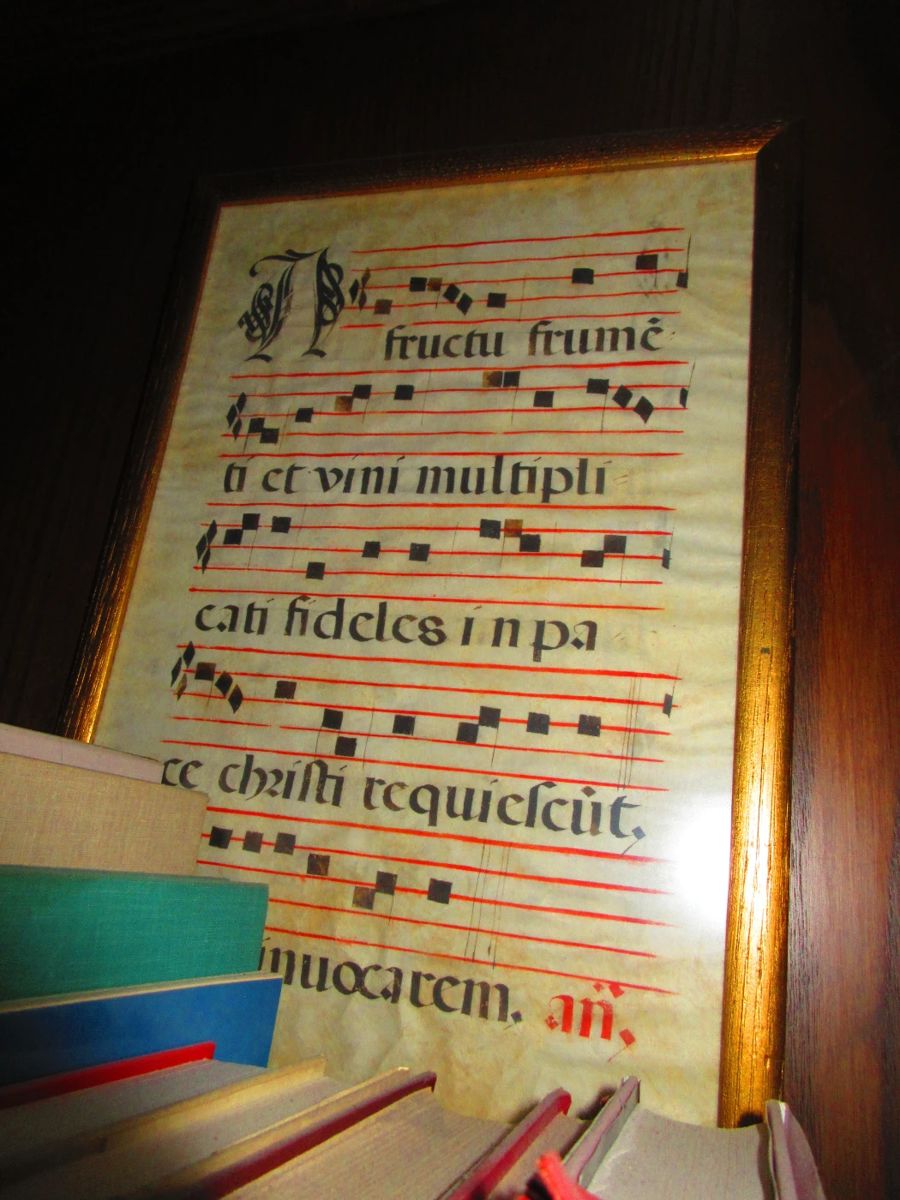 A fructu frumẽ
ti et vini multipli
cati fideles in pa
ce christi requiescũt,
inuocarem. añ.